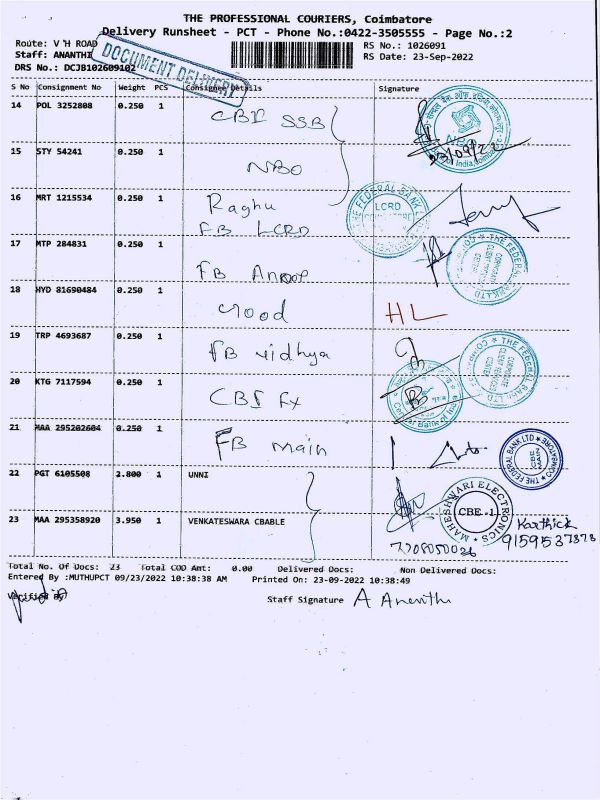 THE PROFESSIONAL COURIERS, Coimbatore
Delivery Runsheet - PCT - Phone No.:0422-3505555 - Page No.:2
Route: V H ROAD
RS No.: 1026091
Staff: ANANTHI
RS Date: 23-Sep-2022
DRS No.: DCJB102609102
DOCUMENT DELIVERY
S No Consignment No Weight PCS Consignee Details Signature
14 POL 3252808 0.250 1 CBI SSB
23/09/22
15 STY 54241 0.250 1 NBO
16 MRT 1215534 0.250 1 Raghu
FB LCRD
THE FEDERAL BANK
LCRD
17 MTP 284831 0.250 1 FB Anoop
THE FEDERAL BANK LTD
18 HYD 81690484 0.250 1 Good HL
19 TRP 4693687 0.250 1 FB Vidhya
THE FEDERAL BANK LTD
20 KTG 7117594 0.250 1 CBI Fx
Central Bank of India
21 MAA 295202604 0.250 1 FB main
THE FEDERAL BANK LTD COIMBATORE
CBE MAIN
22 PGT 6105508 2.800 1 UNNI
MAHESHWARI ELECTRONICS
CBE -1
23 MAA 295358920 3.950 1 VENKATESWARA CBABLE
Karthick
9159537878
Total No. Of Docs: 23 Total COD Amt: 0.00 Delivered Docs: Non Delivered Docs:
Entered By :MUTHUPCT 09/23/2022 10:38:38 AM Printed On: 23-09-2022 10:38:49
Verified By
Staff Signature A Ananthi